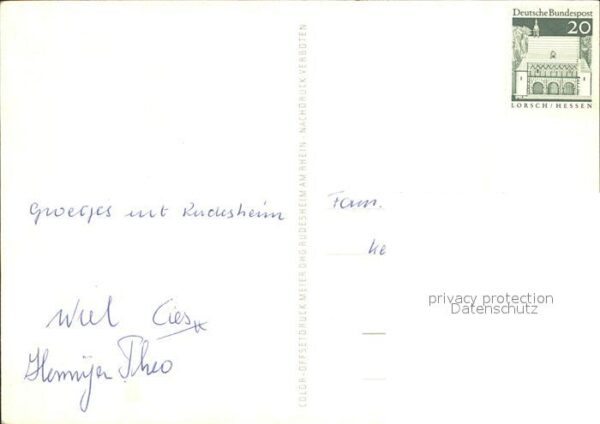 Deutsche Bundespost
20
LORSCH/HESSEN
Groetjes uit Rudesheim
Wiel Cies
Theo
COLOR-OFFSETDRUCK MEIER OHG RÜDESHEIM AM RHEIN - NACHDRUCK VERBOTEN
Fam.
ke
privacy protection
Datenschutz